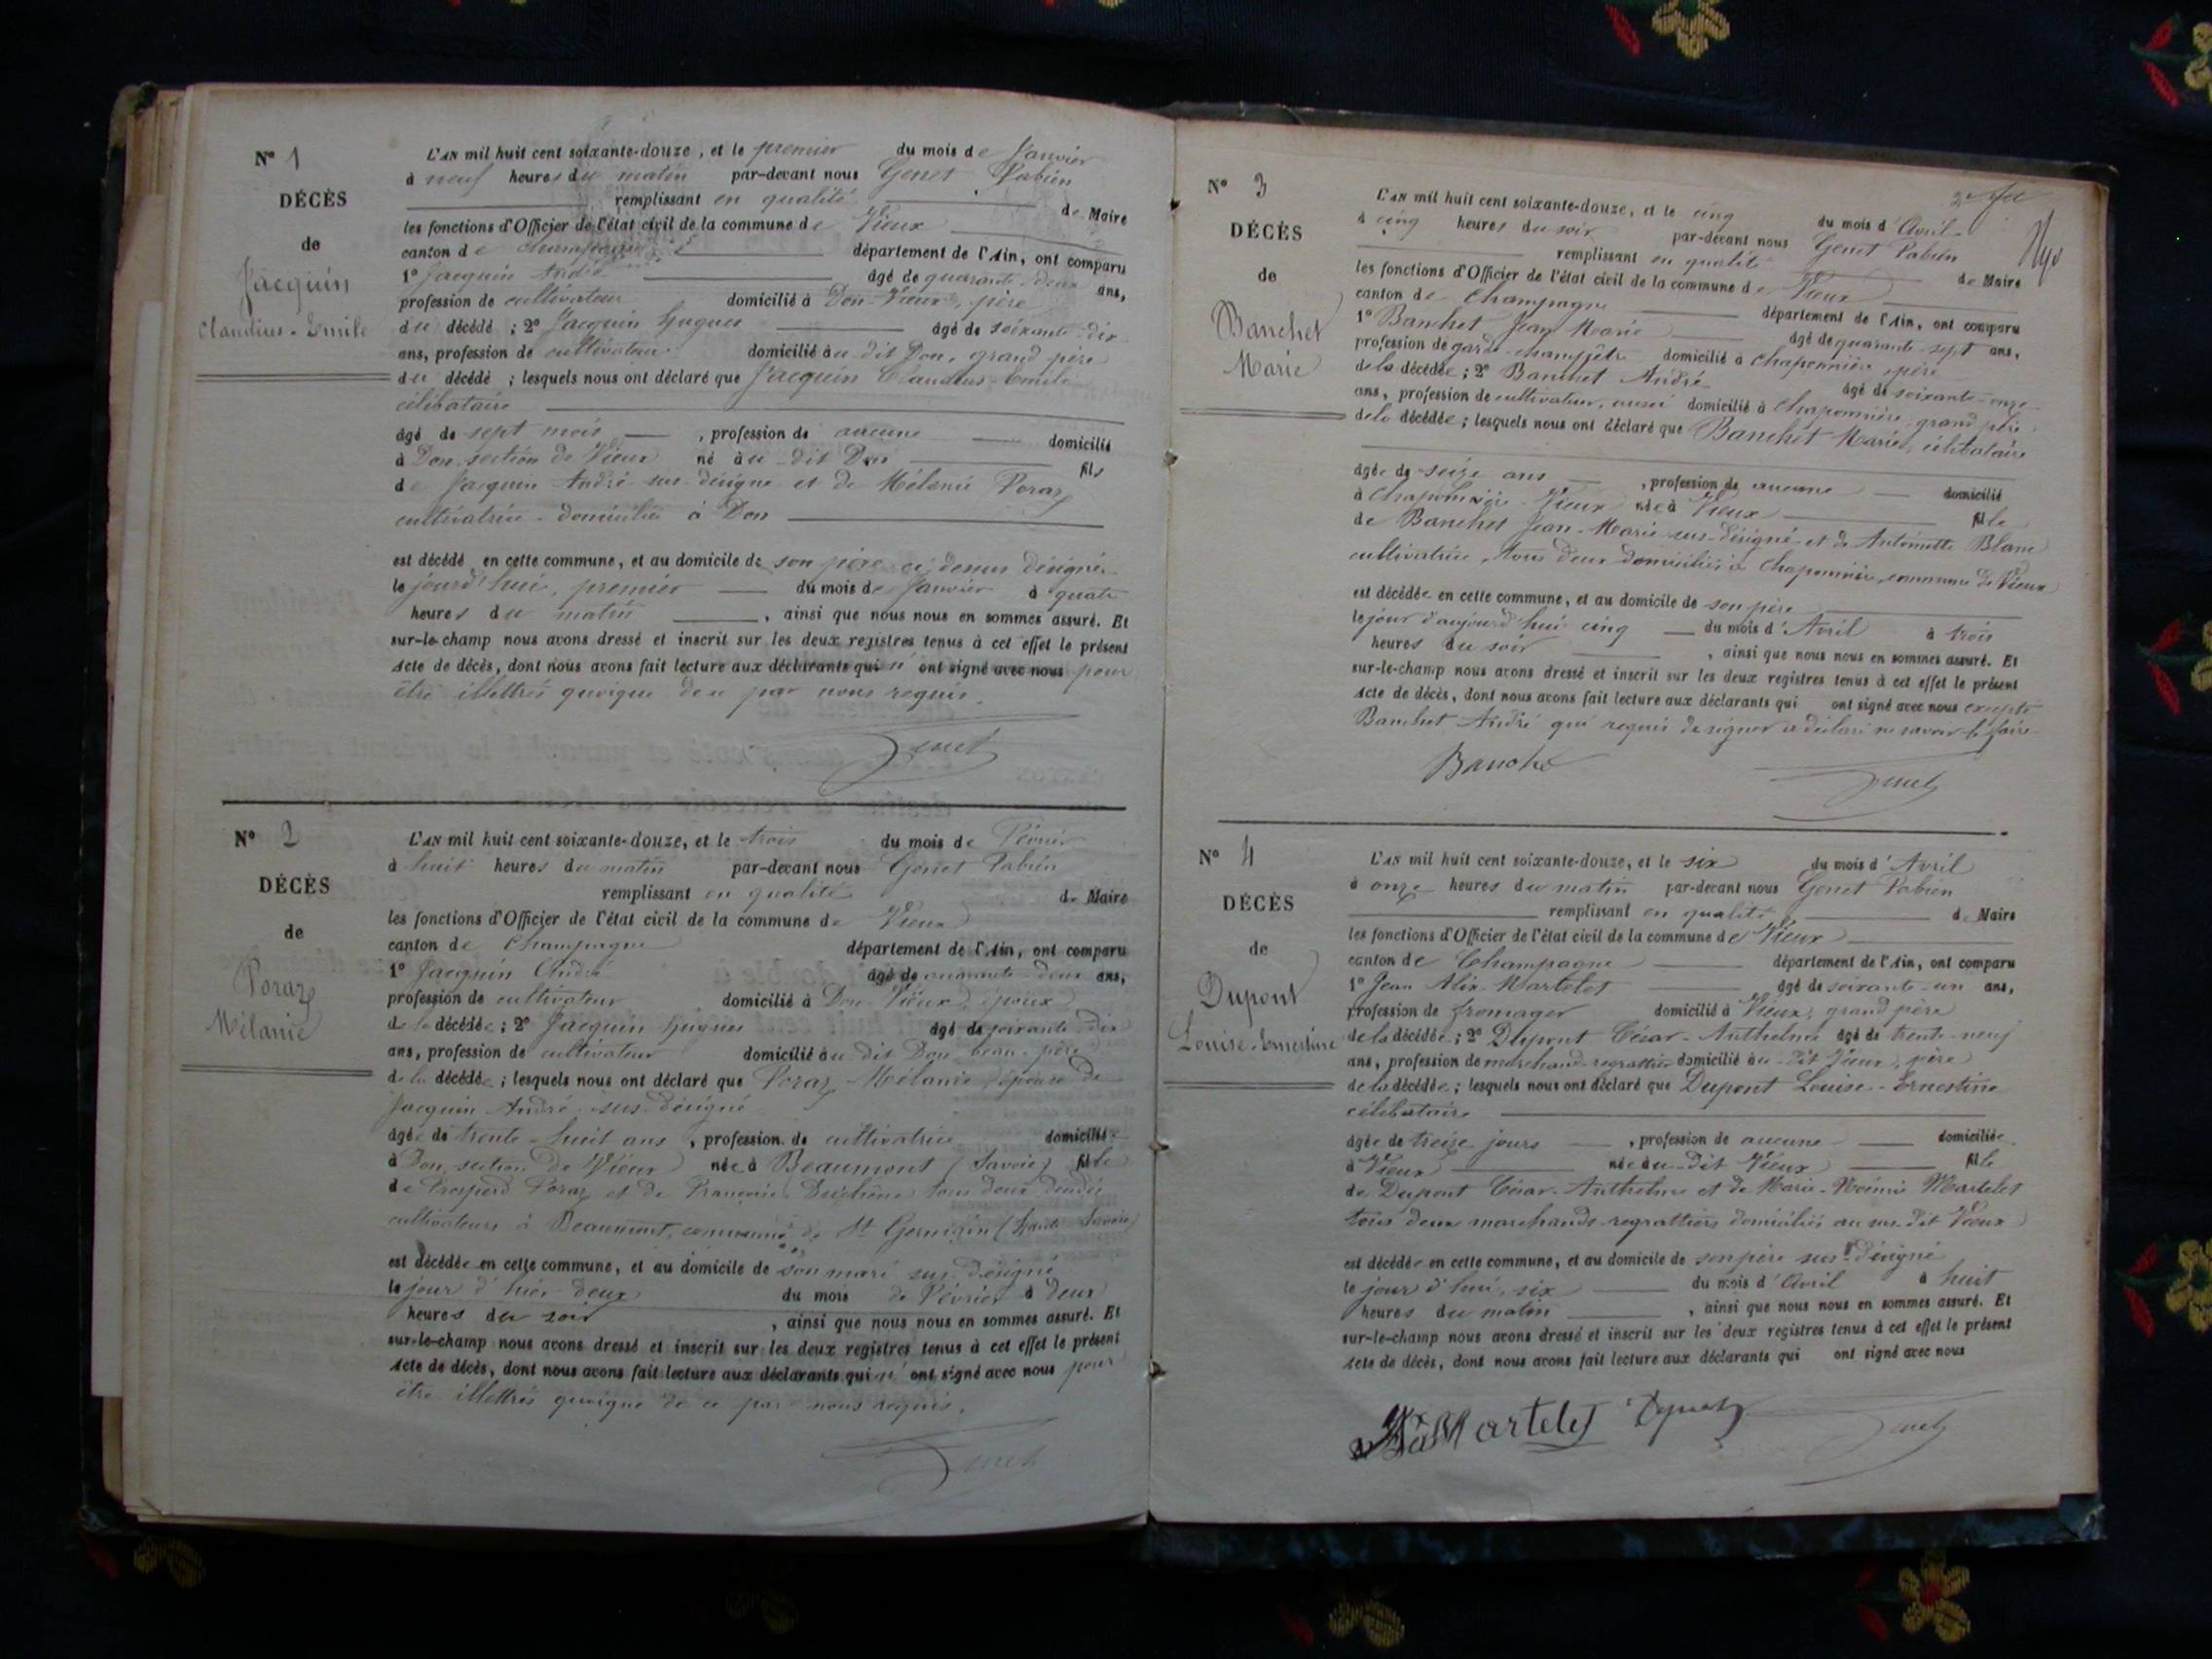 N° 1
DÉCÈS
de
Jacquin
Claudius-Emile
L'AN mil huit cent soixante-douze, et le premier du mois de Janvier
à neuf heures du matin par-devant nous Genet Fabien
remplissant en qualité de Maire
les fonctions d'Officier de l'état civil de la commune de Vieux
canton de Champagne département de l'Ain, ont comparu
1° Jacquin André âgé de quarante-deux ans,
profession de cultivateur domicilié à Don-Vieux, père
du décédé ; 2° Jacquin Hugues âgé de soixante-dix
ans, profession de cultivateur domicilié au dit Don, grand père
du décédé ; lesquels nous ont déclaré que Jacquin Claudius-Emile
célibataire
âgé de sept mois , profession de aucune domicilié
à Don section de Vieux né au-dit Don fils
de Jacquin André sus-désigné et de Mélanie Poraz
cultivatrice domiciliée à Don
est décédé en cette commune, et au domicile de son père ci-dessus désigné
le jourd'hui, premier du mois de Janvier à quatre
heures du matin , ainsi que nous nous en sommes assuré. Et
sur-le-champ nous avons dressé et inscrit sur les deux registres tenus à cet effet le présent
Acte de décès, dont nous avons fait lecture aux déclarants qui n'ont signé avec nous pour
être illettrés quoique de ce par nous requis.
Genet
N° 2
DÉCÈS
de
Poraz
Mélanie
L'AN mil huit cent soixante-douze, et le trois du mois de Février
à huit heures du matin par-devant nous Genet Fabien
remplissant en qualité de Maire
les fonctions d'Officier de l'état civil de la commune de Vieux
canton de Champagne département de l'Ain, ont comparu
1° Jacquin André âgé de quarante-deux ans,
profession de cultivateur domicilié à Don-Vieux, époux
de la décédée ; 2° Jacquin Hugues âgé de soixante-dix
ans, profession de cultivateur domicilié au dit Don beau-père
de la décédée ; lesquels nous ont déclaré que Poraz Mélanie épouse de
Jacquin André sus-désigné
âgée de trente-huit ans , profession de cultivatrice domiciliée
à Don, section de Vieux née à Beaumont (Savoie) fille
de Poraz et de tous deux
cultivateurs à Beaumont, commune de St (Haute Savoie)
est décédée en cette commune, et au domicile de son mari sus-désigné
le jour d'hier deux du mois de Février à deux
heures du soir , ainsi que nous nous en sommes assuré. Et
sur-le-champ nous avons dressé et inscrit sur les deux registres tenus à cet effet le présent
Acte de décès, dont nous avons fait lecture aux déclarants qui n'ont signé avec nous pour
être illettrés quoique de ce par nous requis.
Genet
N° 3
DÉCÈS
de
Banchet
Marie
L'AN mil huit cent soixante-douze, et le cinq du mois d'Avril
à cinq heures du soir par-devant nous Genet Fabien
remplissant en qualité de Maire
les fonctions d'Officier de l'état civil de la commune de Vieux
canton de Champagne département de l'Ain, ont comparu
1° Banchet Jean Marie âgé de quarante-sept ans,
profession de garde-champêtre domicilié à Chaponnière père
de la décédée ; 2° Banchet André âgé de soixante-onze
ans, profession de cultivateur, aussi domicilié à Chaponnière, grand père
de la décédée ; lesquels nous ont déclaré que Banchet Marie, célibataire
âgée de seize ans , profession de aucune domicilié
à Chaponnière-Vieux née à Vieux fille
de Banchet Jean-Marie sus-désigné et de Antoinette Blanc
cultivatrice, tous deux domiciliés à Chaponnière, commune de Vieux
est décédée en cette commune, et au domicile de son père
le jour d'aujourd'hui cinq du mois d'Avril à trois
heures du soir , ainsi que nous nous en sommes assuré. Et
sur-le-champ nous avons dressé et inscrit sur les deux registres tenus à cet effet le présent
Acte de décès, dont nous avons fait lecture aux déclarants qui ont signé avec nous excepté
Banchet André qui requis de signer a déclaré ne savoir le faire
Banchet Genet
N° 4
DÉCÈS
de
Dupont
Louise-Ernestine
L'AN mil huit cent soixante-douze, et le six du mois d'Avril
à onze heures du matin par-devant nous Genet Fabien
remplissant en qualité de Maire
les fonctions d'Officier de l'état civil de la commune de Vieux
canton de Champagne département de l'Ain, ont comparu
1° Jean Alix Martelet âgé de soixante-un ans,
profession de fromager domicilié à Vieux, grand père
de la décédée ; 2° Dupont César-Anthelme âgé de trente-neuf
ans, profession de marchand-regrattier domicilié au-dit Vieux, père
de la décédée ; lesquels nous ont déclaré que Dupont Louise-Ernestine
célibataire
âgée de treize jours , profession de aucune domiciliée
à Vieux née au-dit Vieux fille
de Dupont César-Anthelme et de Marie-Noémie Martelet
tous deux marchands-regrattiers domiciliés au sus-dit Vieux
est décédée en cette commune, et au domicile de son père sus-désigné
le jour d'hui, six du mois d'Avril à huit
heures du matin , ainsi que nous nous en sommes assuré. Et
sur-le-champ nous avons dressé et inscrit sur les deux registres tenus à cet effet le présent
Acte de décès, dont nous avons fait lecture aux déclarants qui ont signé avec nous
Martelet Dupont Genet